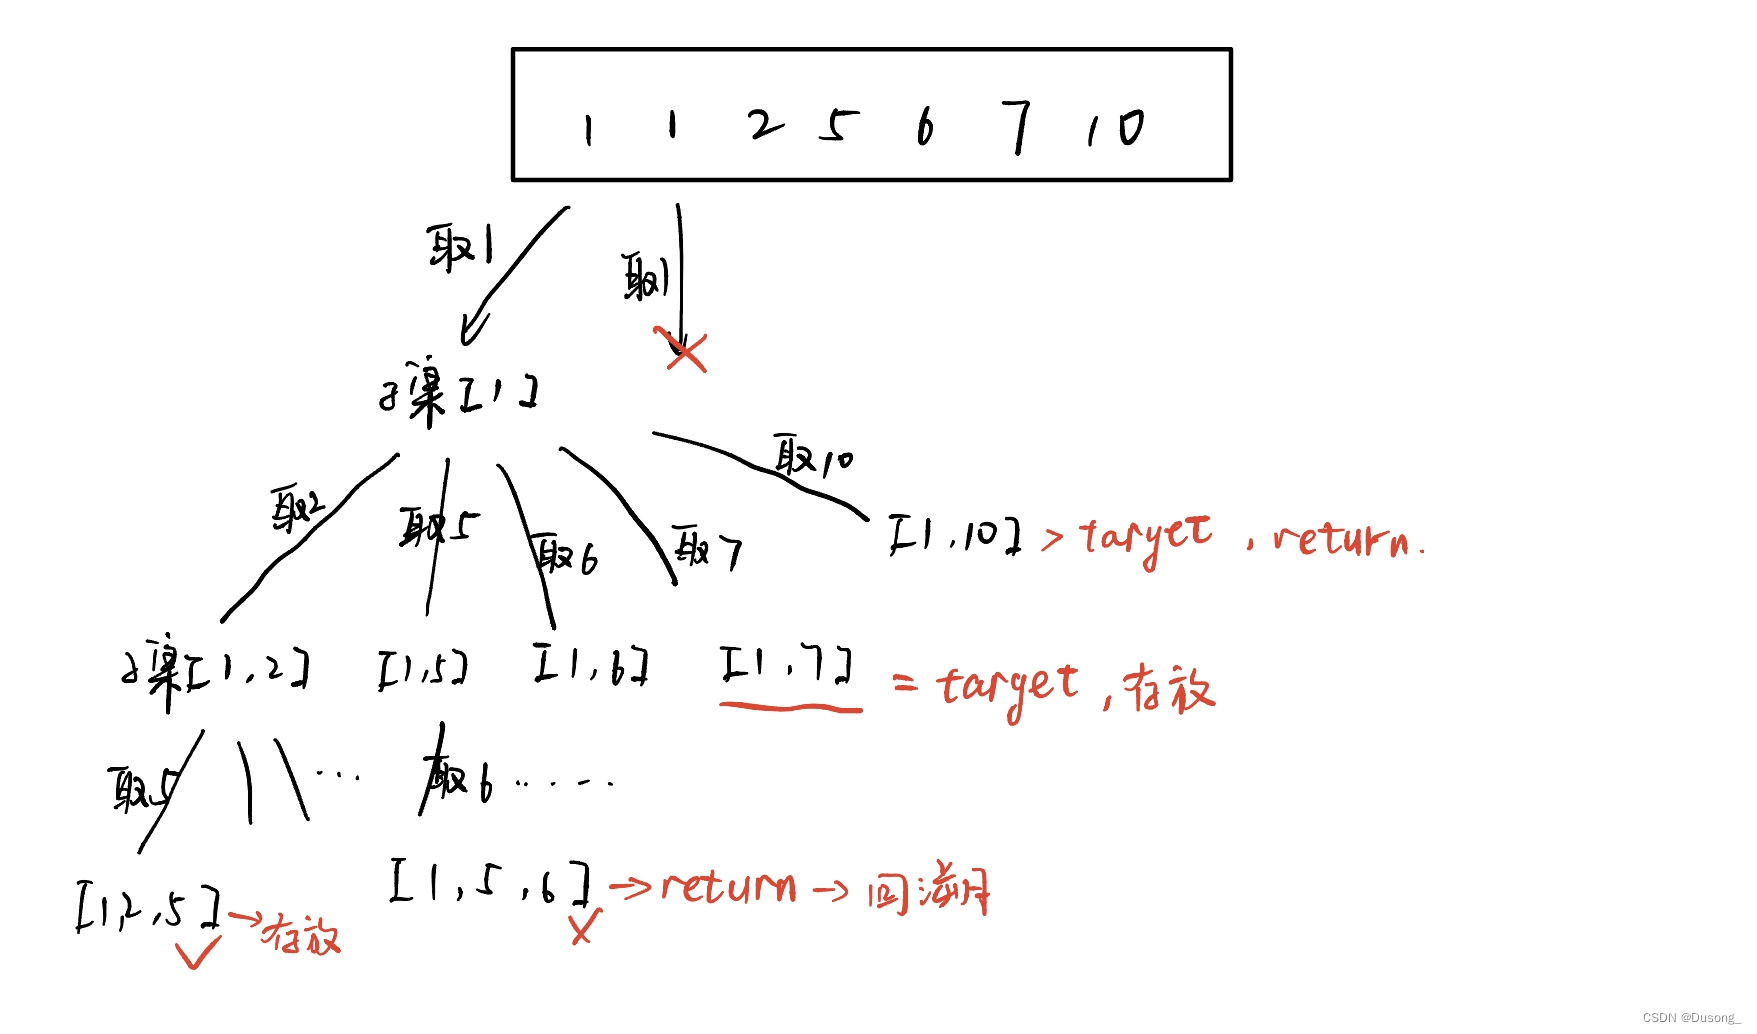 1 1 2 5 6 7 10
取1
取1
子集[1]
取2
取5
取6
取7
取10
[1,10] > target,return.
子集[1,2]
[1,5]
[1,6]
[1,7] = target,存放
取5
...
取6 ......
[1,2,5] → 存放
[1,5,6] → return → 回溯
CSDN @Dusong_